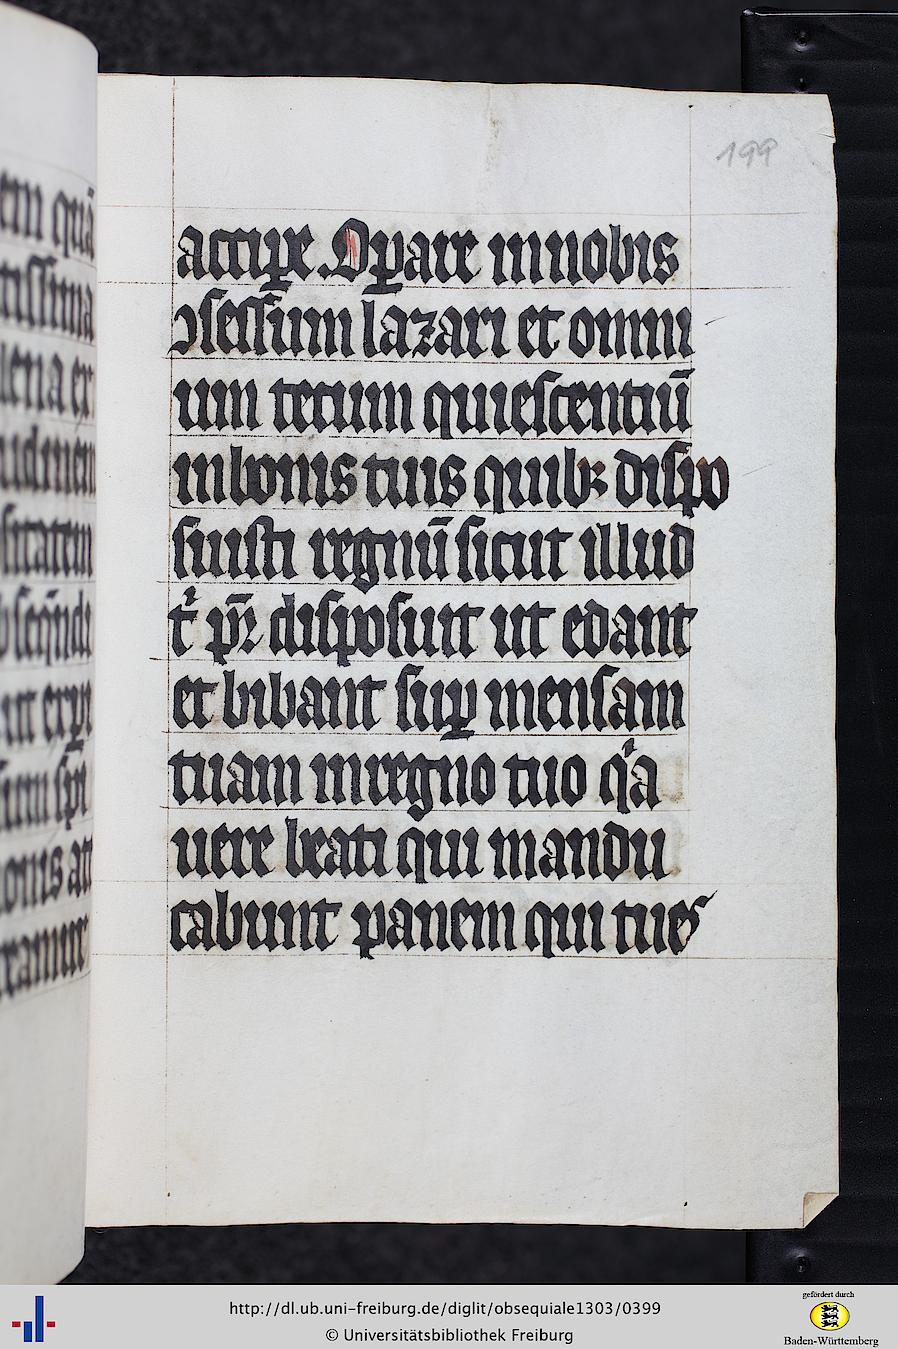 199
accipe. Op̱are in nobis
ꝯsessum lazari et omni
um tecum quiescentiū
in bonis tuis quibꝫ dispo
suisti regnū sicut illud
t͛ pr̄ disposuit ut edant
et bibant suꝑ mensam
tuam in regno tuo qͥa
uere beati qui mandu
cabunt panem qui tu es
http://dl.ub.uni-freiburg.de/diglit/obsequiale1303/0399
© Universitätsbibliothek Freiburg
gefördert durch
Baden-Württemberg